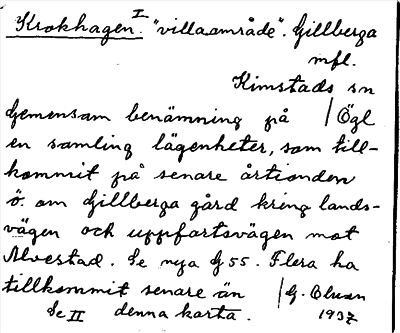 Krokhagen. I "villaområde". Gillberga
mfl.
Kimstads sn
Gemensam benämning på / Ögl
en samling lägenheter, som till-
kommit på senare årtionden
ö. om Gillberga gård kring lands-
vägen och uppfartsvägen mot
Alvestad. Se nya G 55. Flera ha
tillkommit senare än / G. Olsson
Se II denna karta. 1937